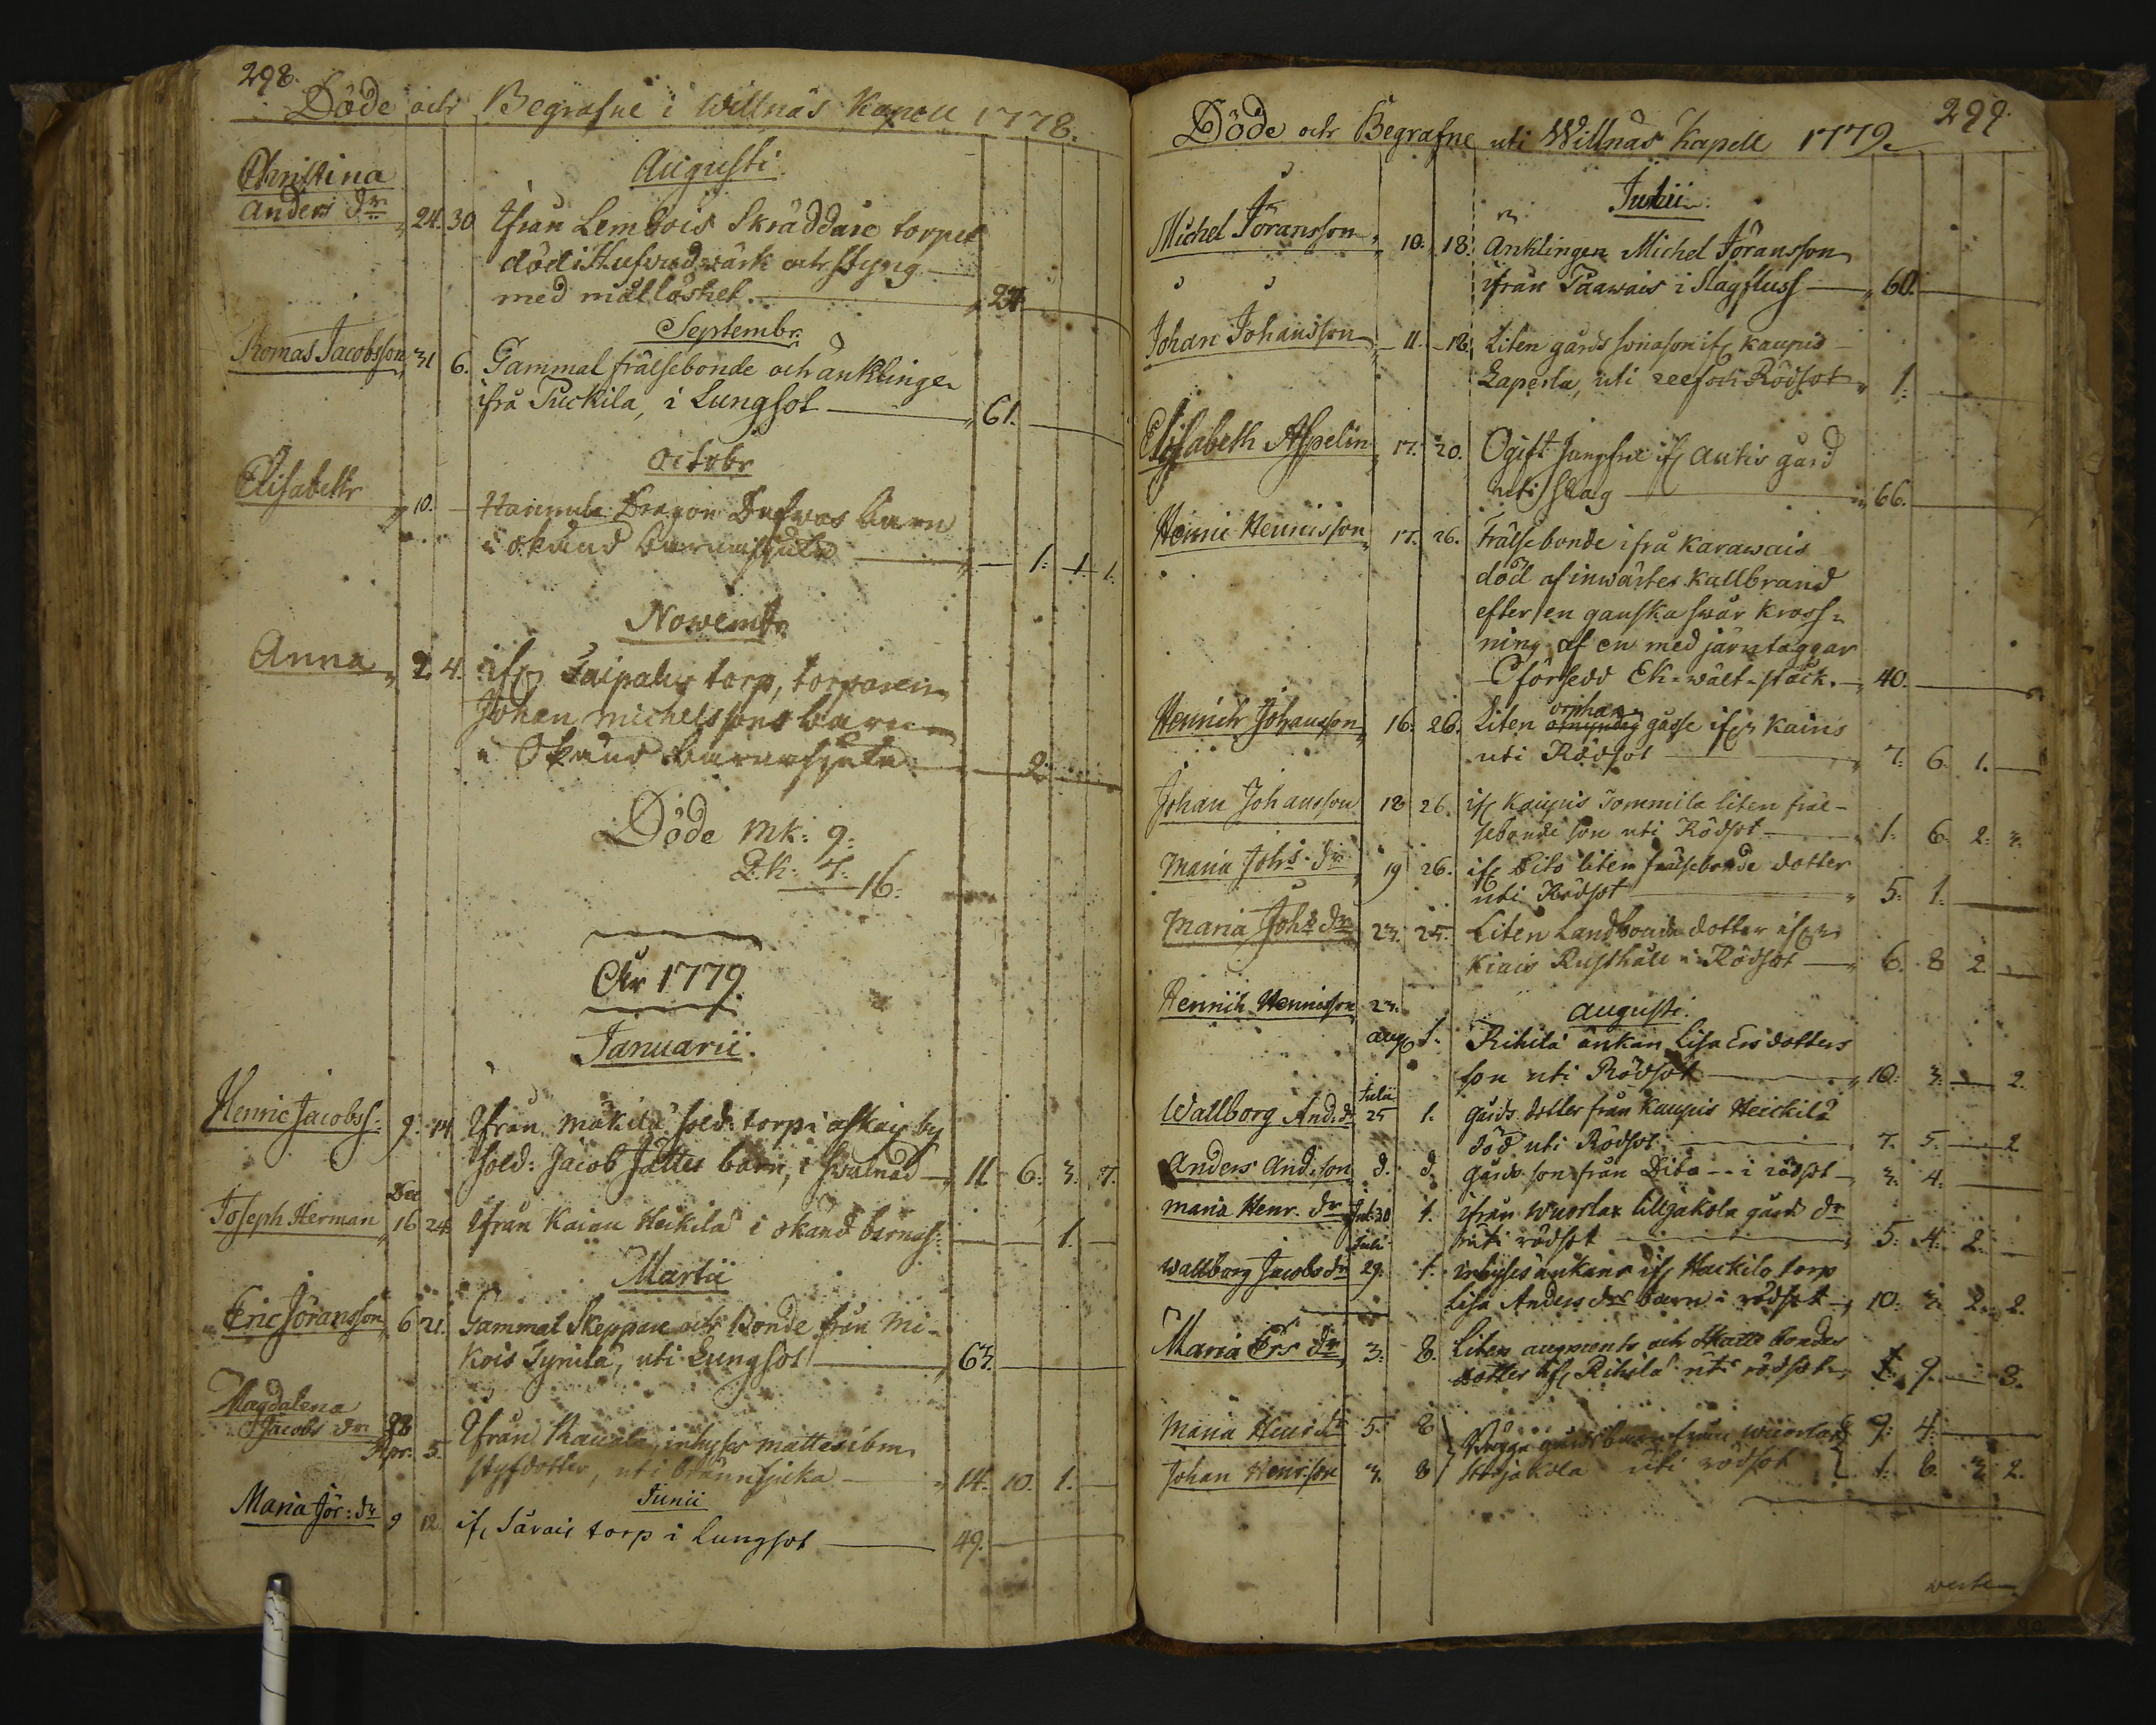 298.
Döde och Begrafne i Willnäs Kapell 1778.
Augusti.
Christina
Anders dr 24. 30 Ifrån Lembois Skräddare torpet
död i Hufvudwärk och styng
med mållöshet. 24
Septembr.
Thomas Jacobsson 31 6. Gammal frälsebonde och änklingen
ifrå Tuckila, i Lungsot 61.
Octobr
Elisabeth 10. Hannula Dragon barn
i okänd barnasjuka 1. 1. 1.
Novembr
Anna 2. 4. ifr Taipalus torp, torparen
Johan Michelssons barn
i Okänd barnasjuka 2.
Döde Mk: 9.
Q.k: 7. 16.
År 1779.
Januarii.
Henric Jacobss: 9. 14 Ifrån Mäkilä sold: torp i Askais by
sold: Jacob barn, i swulnad 11 6. 3. 7.
Dec
Joseph Herman 16 24 Ifrån Kaiau Heikilä i okänd barnas: 1.
Martii
Eric Göransson 6 21. Gammal Skeppare och Bonde från Mi-
kois Tyrilä, uti Lungsot 63.
Magdalena
Jacobs dr 28
Apr. 5. Ifrån inhyses
styfdotter, uti brännsjuka 14. 10. 1.
Junii
Maria Jör: dr 9 12 ifr Särais torp i Lungsot 49.
299.
Döde och Begrafne uti Willnäs Kapell 1779.
Julii.
Michel Jöransson 10. 18. Änklingen Michel Jöransson
ifrån Taawais i Slagfluss 60.
Johan Johansson 11. 18. Liten gårds sonason ifr Kaupis
Laperla, uti reef och Rödsot 1.
Elisabeth Aspelin 17. 20. Ogift Jungfru ifr Autis gård
uti slag 66.
Henric Henricsson 17. 26. Frälsebonde ifrå Karawais
död af inwärtes kallbrand
efter en ganska swår kross-
ning af en med järntaggar
försedd Ek-wält-stock. 40.
orphan
Henrich Johansson 16. 26. Liten gosse ifr Kairis
uti Rödsot 7. 6. 1.
Johan Johansson 18 26. ifr Kaupis Tommila liten fräl-
sebonde son uti Rödsot 1. 6. 2. 3.
Maria Johs dr 19 26. ifr Dito liten frälsebonde dotter
uti Rödsot 5. 1.
Maria Johs dr 23. 25. Liten Landbonde dotter ifr
Kiais Rusthåll i Rödsot 6. 8 2
Henrich Henricsson 23. Augusti.
aug 1. Rihilä änkan Lisa Ersdotters
son uti Rödsot 10. 3. 2.
Julii
Wallborg And. dr 25 1. gårds dotter från Kaupis Heickilä
död uti Rödsot 7. 5. 2
Anders And.son d. d. gårds son från Dito i rödsot 3. 4.
Maria Henr. dr Jul. 30 1. ifrån Wuorlax Lilljakola gård dr
uti rödsot 5. 4. 2.
Juli
Wallborg Jacobs dr 29. 1. inhyses änkans ifr Hackilo torp
Lisa Anders drs barn i rödsot 10. 3. 2. 2.
Maria Ers dr 3. 8. Liten augments och Skatte bondes
dotter ifr Rihilä uti rödsot 1. 9. 3.
Maria Henrs dr 5. 8 gårds barn från Wuorlax 9. 4.
Johan Henr.son 3. 8 uti rödsot 1. 6. 3. 2.
verte